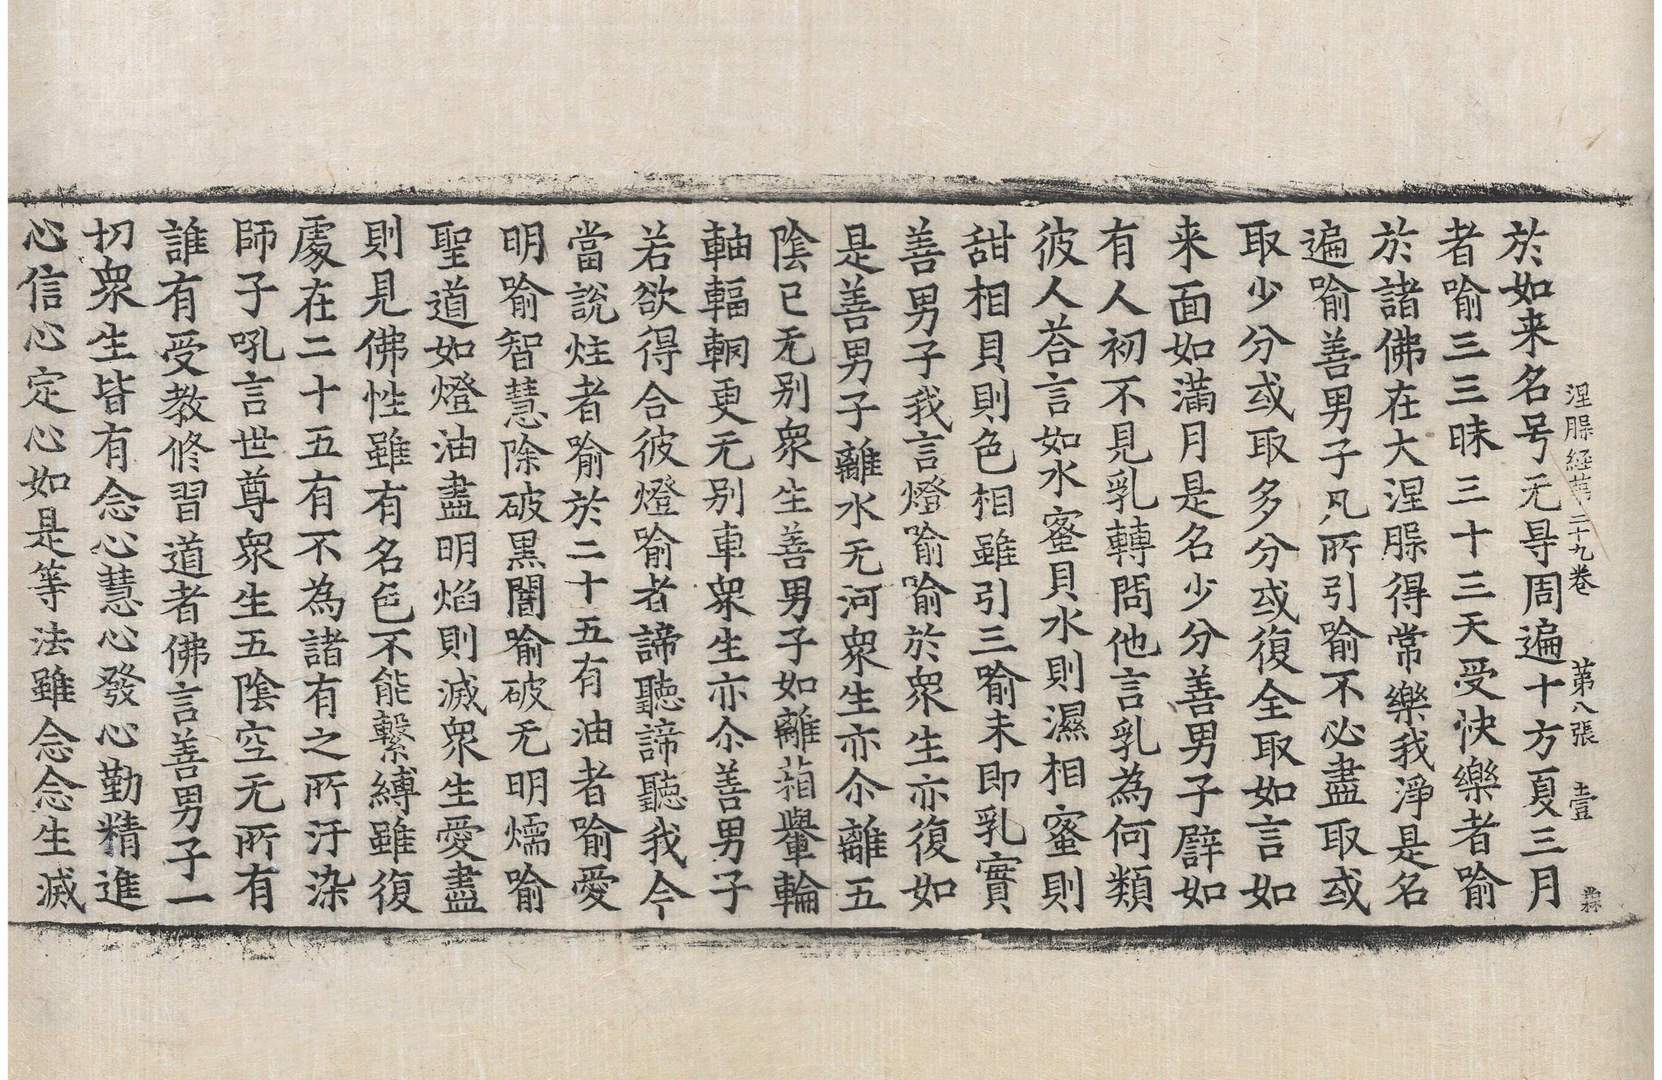 涅槃経第二十九巻 第八張 壹
於如来名号无㝵周遍十方夏三月
者喻三三昧三十三天受快樂者喻
於諸佛在大涅槃得常樂我淨是名
遍喻善男子凡所引喻不必盡取或
取少分或取多分或復全取如言如
来面如滿月是名少分善男子辟如
有人初不見乳轉問他言乳為何類
彼人荅言如水蜜貝水則濕相蜜則
甜相貝則色相雖引三喻未即乳實
善男子我言燈喻喻於衆生亦復如
是善男子離水无河衆生亦尒離五
陰已无别衆生善男子如離葙轝輪
軸輻輞更无别車衆生亦尒善男子
若欲得合彼燈喻者諦聽諦聽我今
當說炷者喻於二十五有油者喻愛
明喻智慧除破黒闇喻破无明煗喻
聖道如燈油盡明焰則滅衆生愛盡
則見佛性雖有名色不能繫縛雖復
處在二十五有不為諸有之所汙染
師子吼言世尊衆生五陰空无所有
誰有受教修習道者佛言善男子一
切衆生皆有念心慧心發心勤精進
心信心定心如是等法雖念念生滅